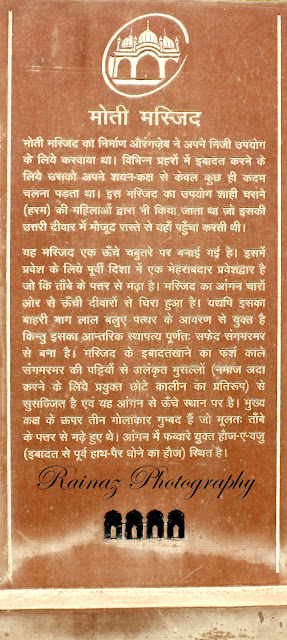 मोती मस्जिद
मोती मस्जिद का निर्माण औरंगज़ेब ने अपने निजी उपयोग
के लिये करवाया था। विभिन्न प्रहरों में इबादत करने के
लिये उसको अपने शयन-कक्ष से केवल कुछ ही कदम
चलना पड़ता था। इस मस्जिद का उपयोग शाही घराने
(हरम) की महिलाओं द्वारा भी किया जाता था जो इसकी
उत्तरी दीवार में मौजूद रास्ते से यहाँ पहुँचा करती थी।
यह मस्जिद एक ऊँचे चबूतरे पर बनाई गई है। इसमें
प्रवेश के लिये पूर्वी दिशा में एक मेहराबदार प्रवेशद्वार है
जो कि ताँबे के पत्तर से मढ़ा है। मस्जिद का आंगन चारों
ओर से ऊँची दीवारों से घिरा हुआ है। यद्यपि इसका
बाहरी भाग लाल बलुए पत्थर के आवरण से युक्त है
किन्तु इसका आन्तरिक स्थापत्य पूर्णतः सफेद संगमरमर
से बना है। मस्जिद के इबादतखाने का फर्श काले
संगमरमर की पट्टियों से अलंकृत मुसल्लों (नमाज अदा
करने के लिये प्रयुक्त छोटे कालीन का प्रतिरूप) से
सुसज्जित है एवं यह आंगन से ऊँचे स्थान पर है। मुख्य
कक्ष के ऊपर तीन गोलाकार गुम्बद हैं जो मूलतः ताँबे
के पत्तर से मढ़े हुए थे। आंगन में फव्वारे युक्त हौज-ए-वजु
(इबादत से पूर्व हाथ-पैर धोने का हौज) स्थित है।
Rainaz Photography